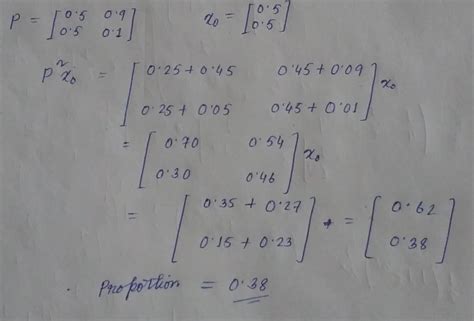 P = [0.5 0.9
0.5 0.1] x0 = [0.5
0.5]
P²x0 = [0.25 + 0.45 0.45 + 0.09
0.25 + 0.05 0.45 + 0.01] x0
= [0.70 0.54
0.30 0.46] x0
= [0.35 + 0.27
0.15 + 0.23] = [0.62
0.38]
Proportion = 0.38